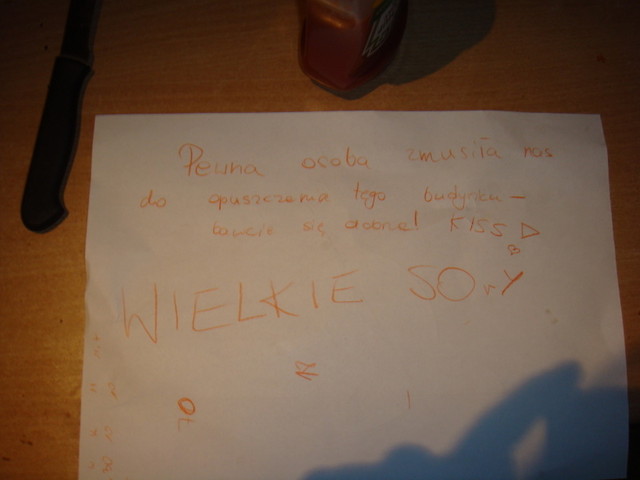 Pewna osoba zmusiła nas
do opuszczenia tego budynku –
bawcie się dobrze! KISS
WIELKIE SOrY